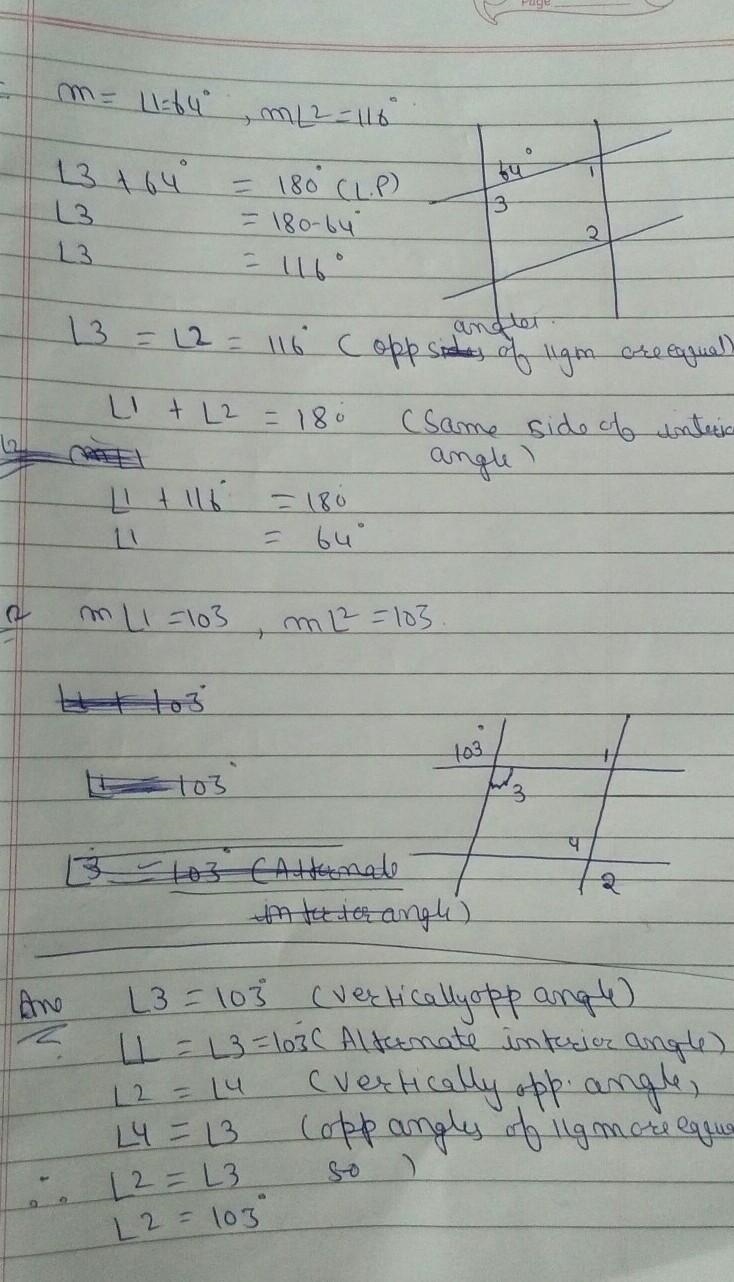 Page
m = ∠1=64° , m∠2=116°
∠3 + 64° = 180° (L.P)
∠3 = 180-64°
∠3 = 116°
64°
1
3
2
angles.
∠3 = ∠2 = 116° ( opp sides of 11gm are equal)
∠1 + ∠2 = 180 (Same side of interio
angle)
∠1 + 116° = 180
∠1 = 64°
m∠1 =103 , m∠2 =103.
∠1 + 103°
103°
103°
1
3
4
2
∠3 = 103° (Alternate
interior angle)
Ans ∠3 = 103° (vertically opp angle)
∠1 = ∠3=103( Alternate interior angle)
∠2 = ∠4 (vertically opp. angle,
∠4 = ∠3 (opp angles of 11gm are equa
∴ ∠2 = ∠3 so )
∠2 = 103°